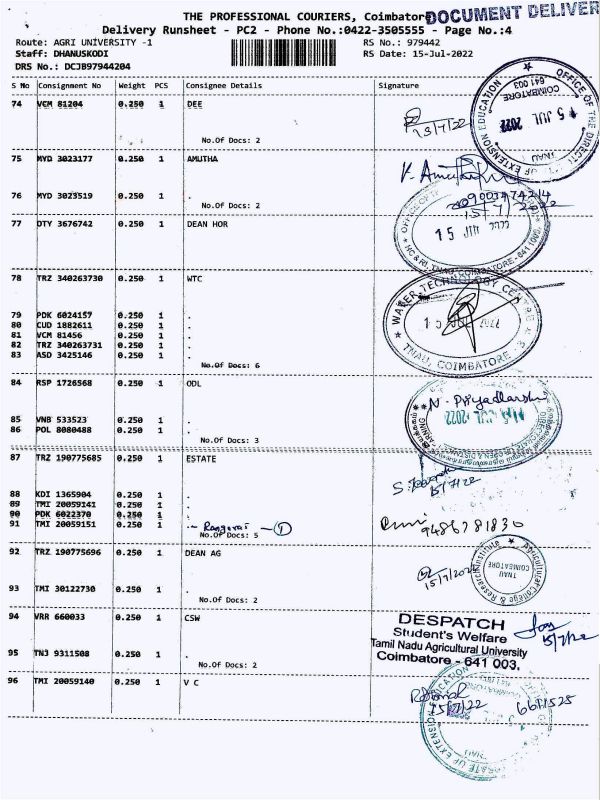 THE PROFESSIONAL COURIERS, Coimbatore
DOCUMENT DELIVER
Delivery Runsheet - PC2 - Phone No.:0422-3505555 - Page No.:4
Route: AGRI UNIVERSITY -1
RS No.: 979442
Staff: DHANUSKODI
RS Date: 15-Jul-2022
DRS No.: DCJB97944204
S No Consignment No Weight PCS Consignee Details Signature
74 VCM 81204 0.250 1 DEE
No.Of Docs: 2
15/7/22
75 MYD 3023177 0.250 1 AMUTHA
76 MYD 3023519 0.250 1 .
No.Of Docs: 2
15/7/2022
77 DTY 3676742 0.250 1 DEAN HOR
15 JUL 2022
78 TRZ 340263730 0.250 1 WTC
WATER TECHNOLOGY CENTRE
15 JUL 2022
TNAU, COIMBATORE
79 PDK 6024157 0.250 1 .
80 CUD 1882611 0.250 1 .
81 VCM 81456 0.250 1 .
82 TRZ 340263731 0.250 1 .
83 ASD 3425146 0.250 1 .
No.Of Docs: 6
84 RSP 1726568 0.250 1 ODL
N. Priyadharshi
85 VNB 533523 0.250 1 .
86 POL 8080488 0.250 1 .
No.Of Docs: 3
87 TRZ 190775685 0.250 1 ESTATE
15/7/22
88 KDI 1365904 0.250 1 .
89 TMI 20059141 0.250 1 .
90 PDK 6022370 0.250 1 .
91 TMI 20059151 0.250 1 .- Rangaraj - 1
No.Of Docs: 5
9486781830
92 TRZ 190775696 0.250 1 DEAN AG
Agricultural College & Research Institute
TNAU
COIMBATORE
15/7/2022
93 TMI 30122730 0.250 1 .
No.Of Docs: 2
94 VRR 660033 0.250 1 CSW
DESPATCH
Student's Welfare
Tamil Nadu Agricultural University
Coimbatore - 641 003.
15/7/22
95 TN3 9311508 0.250 1 .
No.Of Docs: 2
96 TMI 20059140 0.250 1 V C
15/7/22
6611525